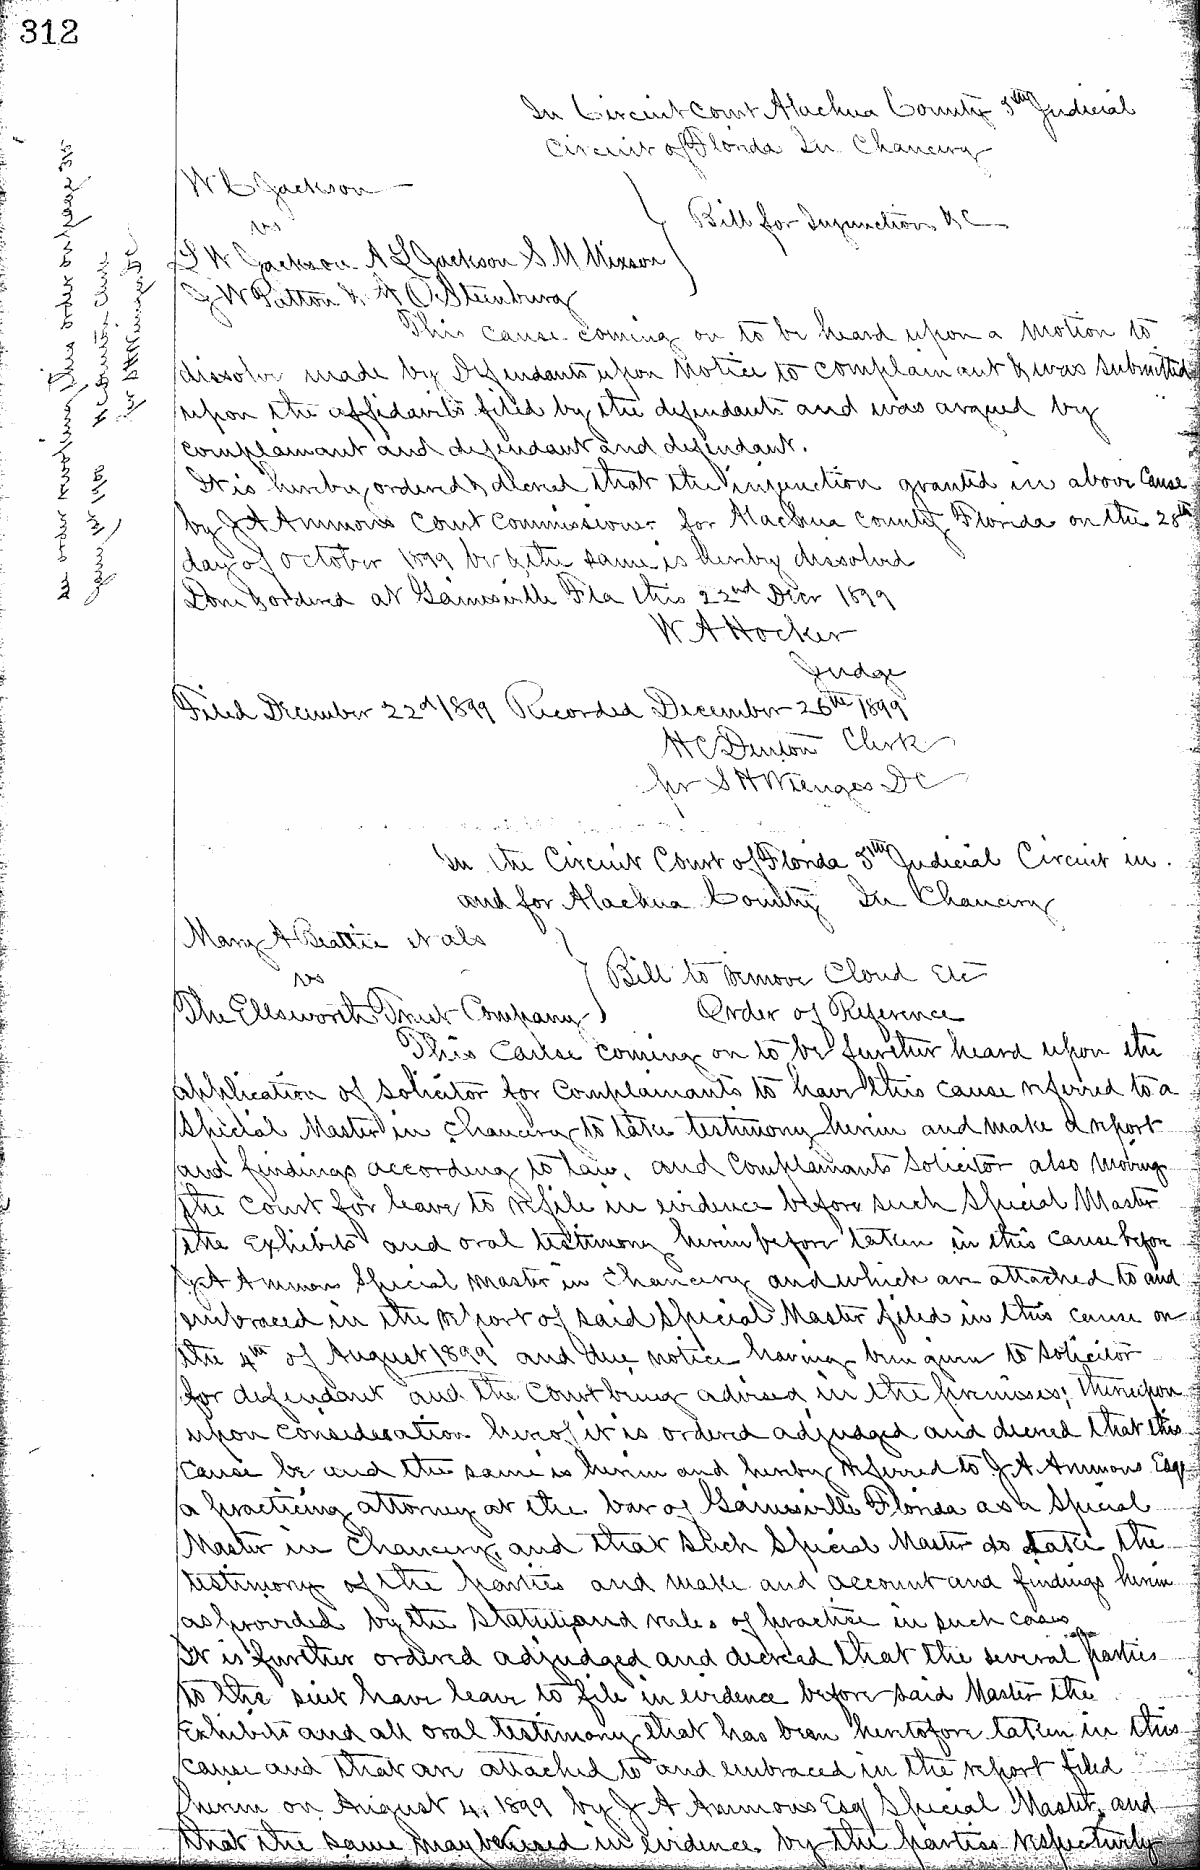 312
In Circuit Court Alachua County 5th Judicial
Circuit of Florida In Chancery
W C Jackson
vs
L W Jackson A L Jackson S M Mixson
J W Patton & H O Steenburg
Bill for Injunction &C
This cause coming on to be heard upon a Motion to
dissolve made by Defendants upon Notice to complainant & was submitted
upon the affidavits filed by the defendants and was argued by
complainant and defendant and defendant.
It is hereby ordered & decreed that the injunction granted in above Cause
by J A Ammons Court Commissioner for Alachua County Florida on the 28th
day of October 1899 be & the same is hereby dissolved
Done & ordered at Gainesville Fla this 22nd Decr 1899
W A Hocker
Judge
Filed December 22d 1899 Recorded December 26th 1899
H C Denton Clerk
per S H Wienges DC
order this order on page 315
Jany 1900 H C Denton Clerk
per S H Wienges DC
In the Circuit Court of Florida 5th Judicial Circuit in
and for Alachua County In Chancery
Mary A Beattie et als
vs
The Ellsworth Trust Company
Bill to remove Cloud Etc
Order of Reference
This Cause coming on to be further heard upon the
application of solicitor for Complainants to have this cause referred to a
Special Master in Chancery to take testimony herein and make a report
and findings according to law, and Complainants Solicitor also moving
the Court for leave to refile in evidence before such Special Master
the Exhibits and oral testimony hereinbefore taken in this cause before
J A Ammons Special Master in Chancery and which are attached to and
embraced in the report of said Special Master filed in this cause on
the 4th of August 1899 and due notice having been given to Solicitor
for defendant and the Court being advised in the premises; Thereupon
upon consideration hereof it is ordered adjudged and decreed that this
cause be and the same is herein and hereby referred to J A Ammons Esqr
a practicing attorney at the bar of Gainesville Florida as a Special
Master in Chancery, and that such Special Master do take the
testimony of the parties and make and account and findings herein
as provided by the Statute and rules of practice in such cases
It is further ordered adjudged and decreed that the several parties
to the suit have leave to file in evidence before said Master the
Exhibits and all oral testimony that has been heretofore taken in this
cause and that are attached to and embraced in the report filed
herein on August 4, 1899 by J A Ammons Esq Special Master, and
that the same may be used in evidence by the parties respectively